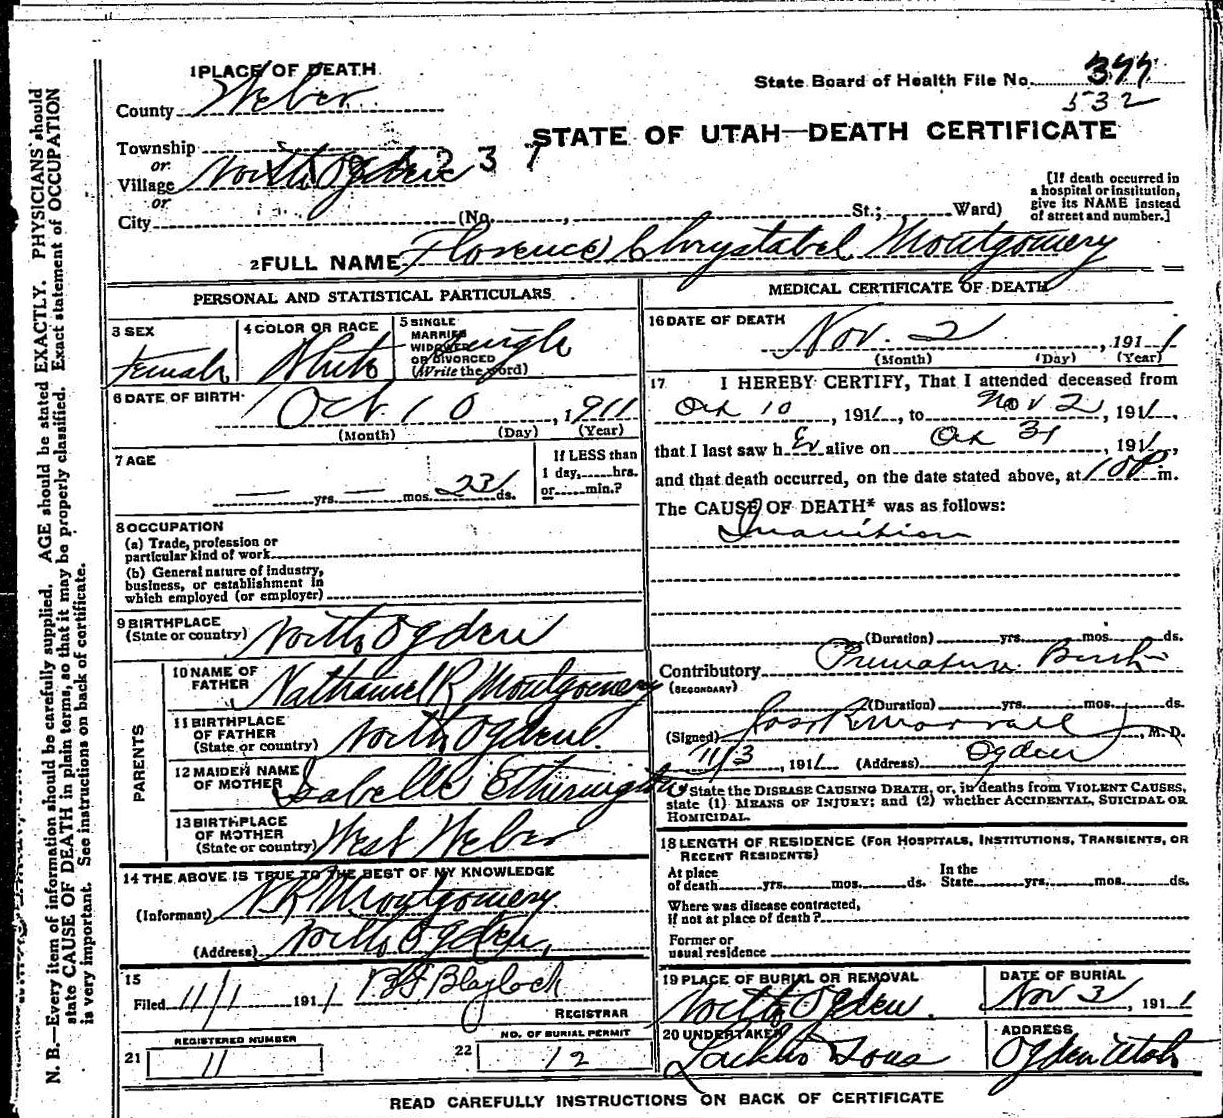 N. B.—Every item of information should be carefully supplied. AGE should be stated EXACTLY. PHYSICIANS should
state CAUSE OF DEATH in plain terms, so that it may be properly classified. Exact statement of OCCUPATION
is very important. See instructions on back of certificate.
1 PLACE OF DEATH
State Board of Health File No.
532
County Weber
STATE OF UTAH—DEATH CERTIFICATE
Township
or
Village North Ogden 237
or
City (No. , St.; Ward)
[If death occurred in
a hospital or institution,
give its NAME instead
of street and number.]
2 FULL NAME Florence Chrystabel Montgomery
PERSONAL AND STATISTICAL PARTICULARS
3 SEX
Female
4 COLOR OR RACE
White
5 SINGLE
MARRIED
WIDOWED
OR DIVORCED
(Write the word)
Single
6 DATE OF BIRTH
Oct 10, 1911
(Month) (Day) (Year)
7 AGE
— yrs. — mos. 23 ds.
If LESS than
1 day, hrs.
or min.?
8 OCCUPATION
(a) Trade, profession or
particular kind of work
(b) General nature of industry,
business, or establishment in
which employed (or employer)
9 BIRTHPLACE
(State or country) North Ogden
PARENTS
10 NAME OF
FATHER Nathaniel R Montgomery
11 BIRTHPLACE
OF FATHER
(State or country) North Ogden.
12 MAIDEN NAME
OF MOTHER Isabelle Etherington
13 BIRTHPLACE
OF MOTHER
(State or country) West Weber
14 THE ABOVE IS TRUE TO THE BEST OF MY KNOWLEDGE
(Informant) N R Montgomery
(Address) North Ogden,
15
Filed 11/1 1911 Blaylock
REGISTRAR
21 REGISTERED NUMBER
11
22 NO. OF BURIAL PERMIT
12
MEDICAL CERTIFICATE OF DEATH
16 DATE OF DEATH
Nov. 2, 1911
(Month) (Day) (Year)
17 I HEREBY CERTIFY, That I attended deceased from
Oct 10, 1911, to Nov 2, 1911,
that I last saw h er alive on Oct 31, 1911,
and that death occurred, on the date stated above, at 1 00 P m.
The CAUSE OF DEATH* was as follows:
Inanition
(Duration) yrs. mos. ds.
Contributory Premature Birth
(SECONDARY)
(Duration) yrs. mos. ds.
(Signed) , M. D.
11/3, 1911 (Address) Ogden
State the DISEASE CAUSING DEATH, or, in deaths from VIOLENT CAUSES,
state (1) MEANS OF INJURY; and (2) whether ACCIDENTAL, SUICIDAL OR
HOMICIDAL.
18 LENGTH OF RESIDENCE (FOR HOSPITALS, INSTITUTIONS, TRANSIENTS, OR
RECENT RESIDENTS)
At place
of death yrs. mos. ds.
In the
State yrs. mos. ds.
Where was disease contracted,
if not at place of death?
Former or
usual residence
19 PLACE OF BURIAL OR REMOVAL
North Ogden.
DATE OF BURIAL
Nov 3, 1911
20 UNDERTAKER
Sons
ADDRESS
Ogden Utah
READ CAREFULLY INSTRUCTIONS ON BACK OF CERTIFICATE